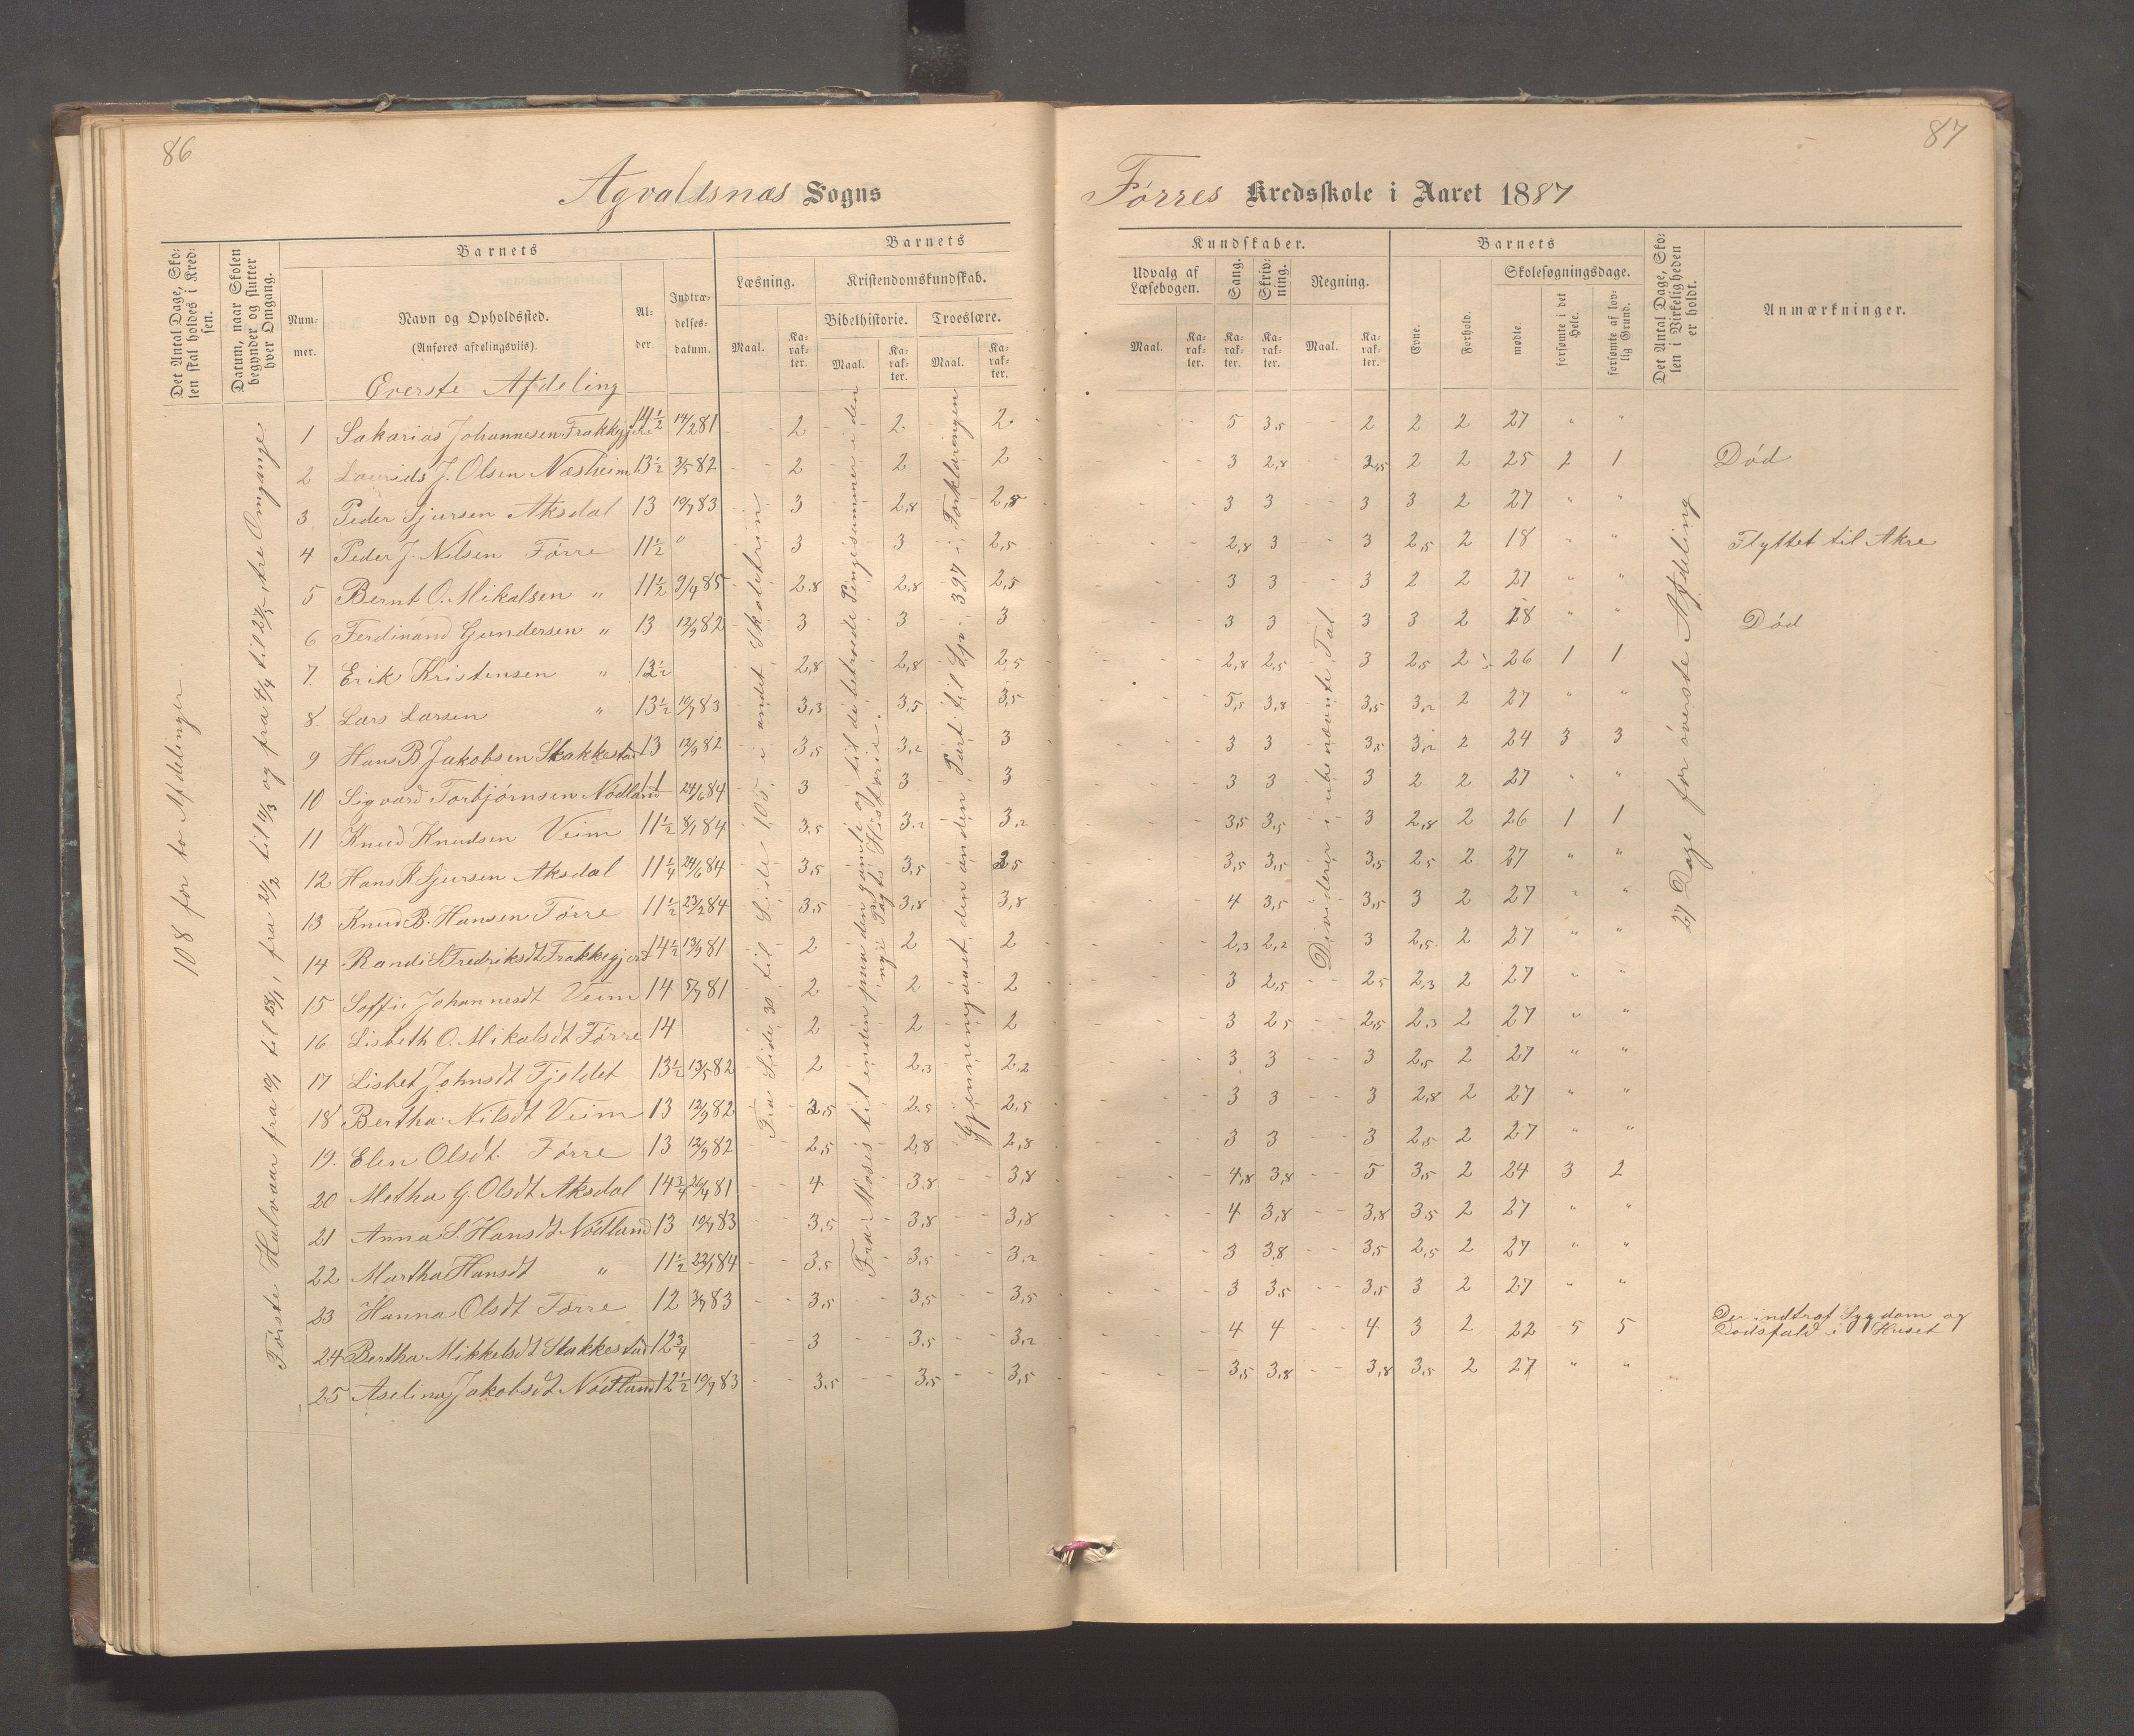 86
Agvaldsnæs Sogns
Det Antal Dage, Skolen skal holdes i Kredsen.
Datum, naar Skolen begynder og slutter hver Omgang.
Barnets
Nummer.
Navn og Opholdssted.
(Anføres afdelingsviis).
Alder.
Indtrædelsesdatum.
Barnets
Læsning.
Kristendomskundskab.
Bibelhistorie.
Troeslære.
Maal.
Karakter.
Maal.
Karakter.
Maal.
Karakter.
Øverste Afdeling
1 Sakarias Johannesen Frakkagjerd 14½ 14/2 81 - - 2 - - 2 - - 2
2 Laurids J. Olsen Næsheim 13½ 3/5 82 - - 2 - - 2 - - 2
3 Peder Sjursen Aksdal 13 10/7 83 - - 3 - - 2,8 - - 2,8
4 Peder J. Nilsen Førre 11½ " - - 3 - - 3 - - 2,5
5 Bernt O. Mikalsen " 11½ 9/4 85 - - 2,8 - - 2,8 - - 2,5
6 Ferdinand Gundersen " 13 12/9 82 - - 3 - - 3 - - 3
7. Erik Kristensen " 13½ - - 2,8 - - 2,8 - - 2,5
8. Lars Larsen " 13½ 10/7 83 - - 3,3 - - 3,5 - - 3,5
9 Hans B Jakobsen Stakkestad 13 12/9 82 - - 3,5 - - 3,2 - - 3
10 Sigvard Torbjørnsen Nødland 11 24/6 84 - - 3 - - 3 - - 3
11 Knud Knudsen Veim 11½ 8/1 84 - - 3,5 - - 3,2 - - 3,2
12 Hans R Sjursen Aksdal 11¼ 24/6 84 - - 3,5 - - 3,5 - - 3,5
13 Knud B. Hansen Førre 11½ 23/2 84 - - 3,5 - - 3,8 - - 3,8
14 Randi S Fredriksdt Frakkagjerd 14½ 13/9 81 - - 2 - - 2 - - 2
15 Soffie Johannesdt Veim 14 5/7 81 - - 2 - - 2 - - 2
16 Lisbeth O. Mikalsdt Førre 14 - - 2 - - 2 - - 2
17 Lisbet Johnsdt Fjeldet 13½ 13/5 82 - - 2 - - 2,3 - - 2,2
18 Bertha Nilsdt Veim 13 12/9 82 - - 2,5 - - 2,5 - - 2,5
19. Elen Olsdt. Førre 13 12/9 82 - - 2,5 - - 2,8 - - 2,8
20 Metha G. Olsdt Aksdal 14¾ 26/4 81 - - 4 - - 3,8 - - 3,8
21 Anna S. Hansdt Nødland 13 10/7 83 - - 3,5 - - 3,8 - - 3,8
22 Martha Hansdt " 11½ 22/1 84 - - 3,5 - - 3,5 - - 3,2
23 Hanna Olsdt Førre 12 3/9 83 - - 3,5 - - 3,5 - - 3,5
24 Bertha Mikkelsdt Stakkestad 12¾ - - 3 - - 3,5 - - 3,2
25 Aselina Jakobsdt Nødland 12½ 10/7 83 - - 3,5 - - 3,5 - - 3,5
108 for to Afdelinger
Første Halvaar fra 10/1 til 28/1, fra 21/2 til 11/3 og fra 4/4 til 23/5, tre Omgange
Fra Side 30 til Side 105 i andet Skoletrin
Fra Moses til enden paa den gamle og til de betroede Pengesummer i den
nye Pagts Historie.
Gjennemgaaet den anden Part til Sp. 397 i Forklaringen
87
Førres Kredsskole i Aaret 1887
Kundskaber.
Udvalg af Læsebogen.
Sang.
Skrivning.
Regning.
Maal.
Karakter.
Karakter.
Karakter.
Maal.
Karakter.
Barnets
Evne.
Forhold.
Skolesøgningsdage.
mødte.
forsømte i det Hele.
forsømte af lovlig Grund.
Det Antal Dage, Skolen i Virkeligheden er holdt.
Anmærkninger.
- - - 5 3,5 - - 2 2 2 27 " "
- - - 3 2,8 - - 2,5 2 2 25 2 1 Død
- - - 3 3 - - 3 3 2 27 " "
- - - 2,8 3 - - 3 2,5 2 18 " " Flyttet til Akre
- - - 3 3 - - 3 2 2 27 " "
- - - 3 3 - - 3 3 2 18 " " Død
- - - 2,8 2,5 - - 3 2,5 2 26 1 1
- - - 5,5 3,8 - - 3,5 3,2 2 27 " "
- - - 3 3 - - 3,5 3,2 2 24 3 3
- - - 3 3 - - 3 2 2 27 " "
- - - 3,5 3,5 - - 3 2,8 2 26 1 1
- - - 3,5 3,5 - - 3,5 2,5 2 27 " "
- - - 4 3,5 - - 3,5 3 2 27 " "
- - - 2,3 2,2 - - 3 2,5 2 27 " "
- - - 3 2,5 - - 2,5 2,3 2 27 " "
- - - 3 2,5 - - 2,5 2,3 2 27 " "
- - - 3 3 - - 3 2,5 2 27 " "
- - - 3 3 - - 3 2,8 2 27 " "
- - - 3 3 - - 3 2,5 2 27 " "
- - - 4,8 3,8 - - 5 3,5 2 24 3 2
- - - 4 3,8 - - 3,8 3,5 2 27 " "
- - - 3 3,8 - - 3,5 2,5 2 27 " "
- - - 3 3,5 - - 3,5 3 2 27 " "
- - - 4 4 - - 4 3 2 22 5 5 Der indtraf Sygdom og
Dødsfald i Huset
- - - 3,5 3,8 - - 3,8 3,5 2 27 " "
Dividerer i ubenævnte Tal
27 Dage for øverste Afdeling